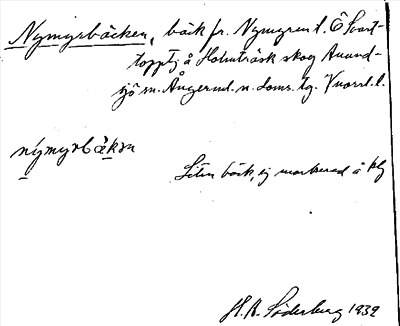 Nymyrbäcken, bäck fr. Nymyren t. Ö Svart-
topptj å Holmträsk skog Anund-
sjö sn. Ångerml. n. doms. tg. Vnorrl. l.
nymyrbäkɛn
Liten bäck, ej markerad å kg
H. A. Söderberg 1932